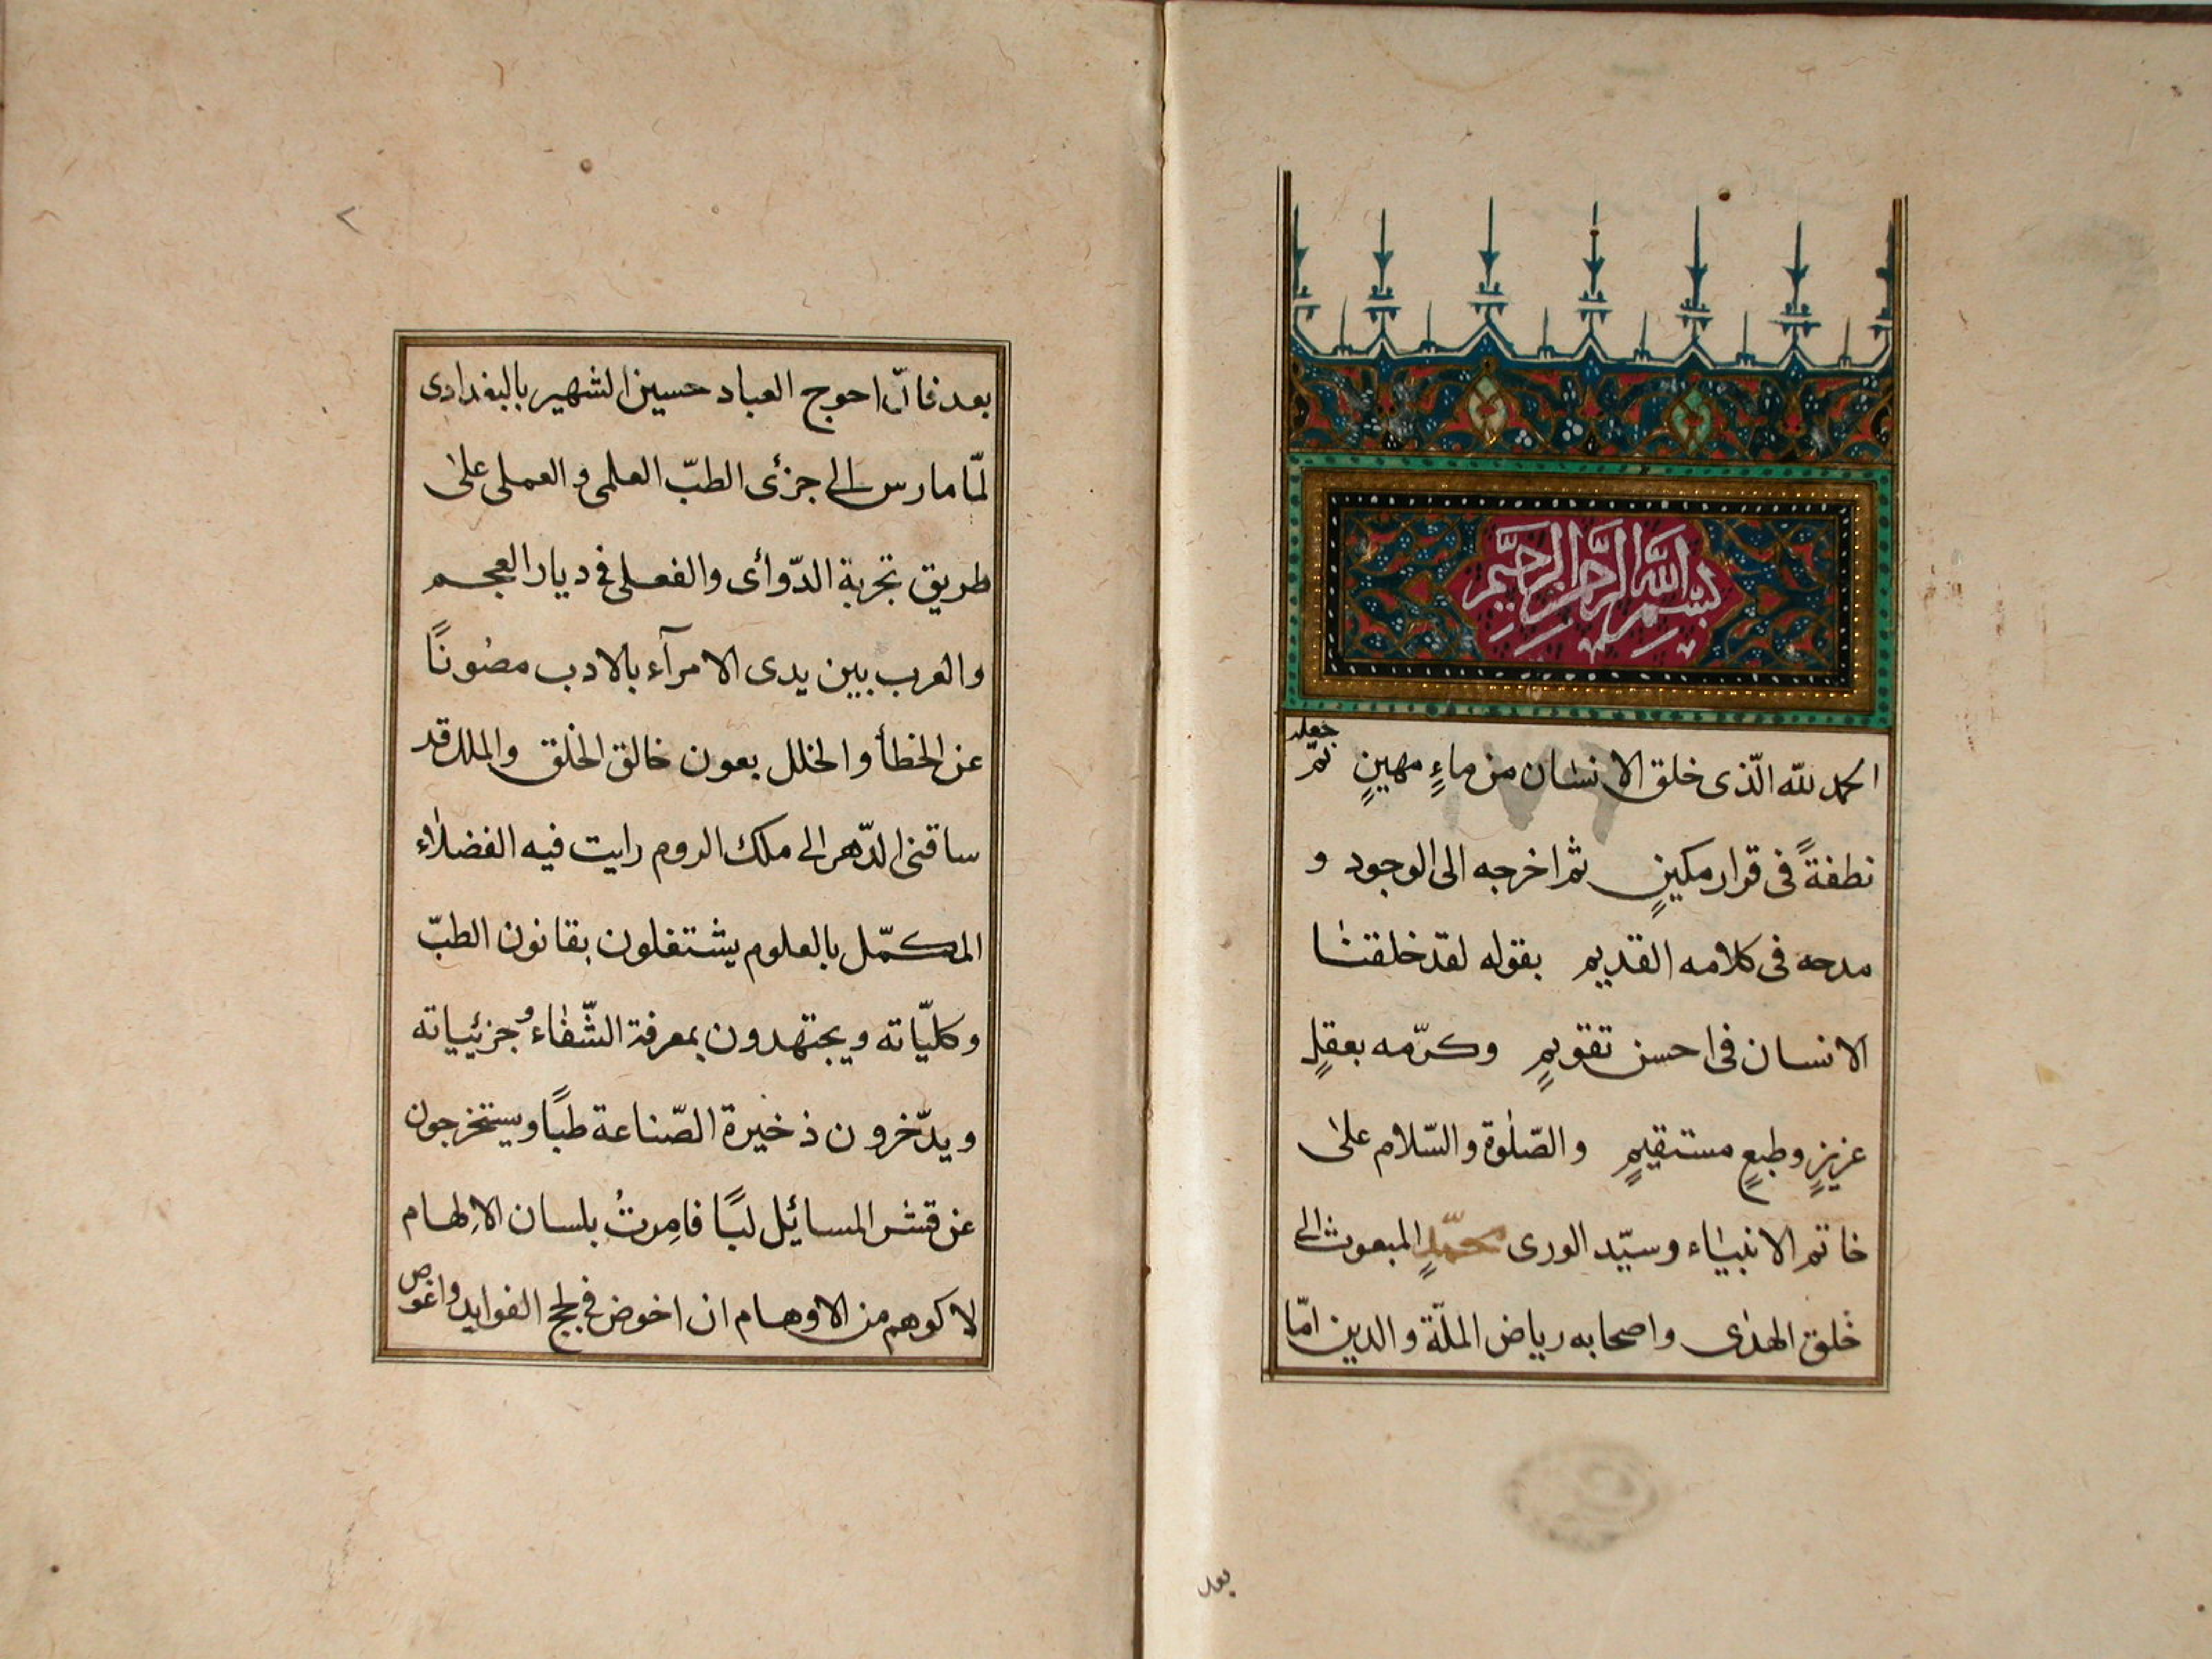 بسم الله الرحمن الرحيم
الحمد لله الّذى خلق الانسان من ماءٍ مهينٍ ثمّ جعله
نطفةً فى قرار مكينٍ ثم اخرجه الى الوجود و
مدحه فى كلامه القديم بقوله لقد خلقنا
الانسان فى احسن تقويمٍ وكرّمه بعقلٍ
عزيزٍ وطبعٍ مستقيمٍ والصّلوة والسّلام على
خاتم الانبياء وسيّد الورى محمّدٍ المبعوث الى
خلق الهدى واصحابه رياض الملّة والدين امّا
بعد
بعد فانّ احوج العباد حسين الشهير بالبغدادى
لمّا مارس الى جزئى الطبّ العلمى والعملى على
طريق تجربة الدّوائى والفعلى فى ديار العجم
والعرب بين يدى الامرآء بالادب مصونًا
عن الخطأ والخلل بعون خالق الخلق والملل قد
ساقنى الدّهر الى ملك الروم رايت فيه الفضلاء
المكمّل بالعلوم يشتغلون بقانون الطبّ
وكليّاته ويجتهدون بمعرفة الشّفاء وجزئيياته
ويدّخرون ذخيرة الصّناعة طبًا ويستخرجون
عن قشر المسائيل لبًا فامِرتُ بلسان الالهام
لا كوهم من الاوهام ان اخوض فى لجج الفوايد واغوص